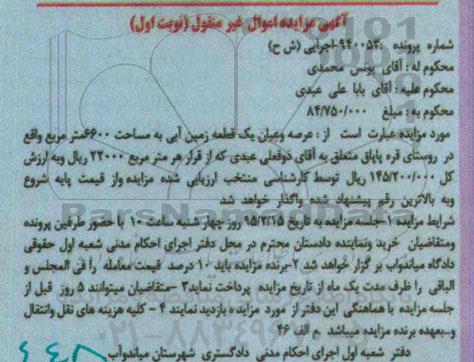 آگهی مزایده اموال غیر منقول (نوبت اول)
شماره پرونده :۹۴۰۰۵۳-اجرایی (ش ح)
محکوم له : آقای یونس محمدی
محکوم علیه : آقای بابا علی عبدی
محکوم به : مبلغ ۸۴/۷۵۰/۰۰۰
مورد مزایده عبارت است از : عرصه وعیان یک قطعه زمین آبی به مساحت ۶۶۰۰متر مربع واقع
در روستای قره پاپاق متعلق به آقای دوفعلی عبدی که از قرار هر متر مربع ۲۲۰۰۰ ریال وبه ارزش
کل ۱۴۵/۲۰۰/۰۰۰ ریال توسط کارشناسی منتخب ارزیابی شده مزایده واز قیمت پایه شروع
وبه بالاترین رقم پیشنهاد شده واگذار خواهد شد
شرایط مزایده ۱-جلسه مزایده با تاریخ ۹۵/۲/۱۵ روز چهار شنبه ساعت ۱۰ با حضور طرفین پرونده
ومتقاضیان خرید ونماینده دادستان محترم در محل دفتر اجرای احکام مدنی شعبه اول حقوقی
دادگاه میاندوآب بر گزار خواهد شد ۲-برنده مزایده باید ۱۰ درصد قیمت معامله را فی المجلس و
الباقی را ظرف مدت یک ماه از تاریخ مزایده پرداخت نماید۳ -متقاضیان میتوانند ۵ روز قبل از
جلسه مزایده با هماهنگی این دفتر از مورد مزایده بازدید نمایند ۴ - کلیه هزینه های نقل وانتقال
و..بعهده برنده مزایده میباشد .م الف ۴۶
دفتر شعبه اول اجرای احکام مدنی دادگستری شهرستان میاندوآب
ParsNamadData
۰۲۱-۸۸۳۴۹۶